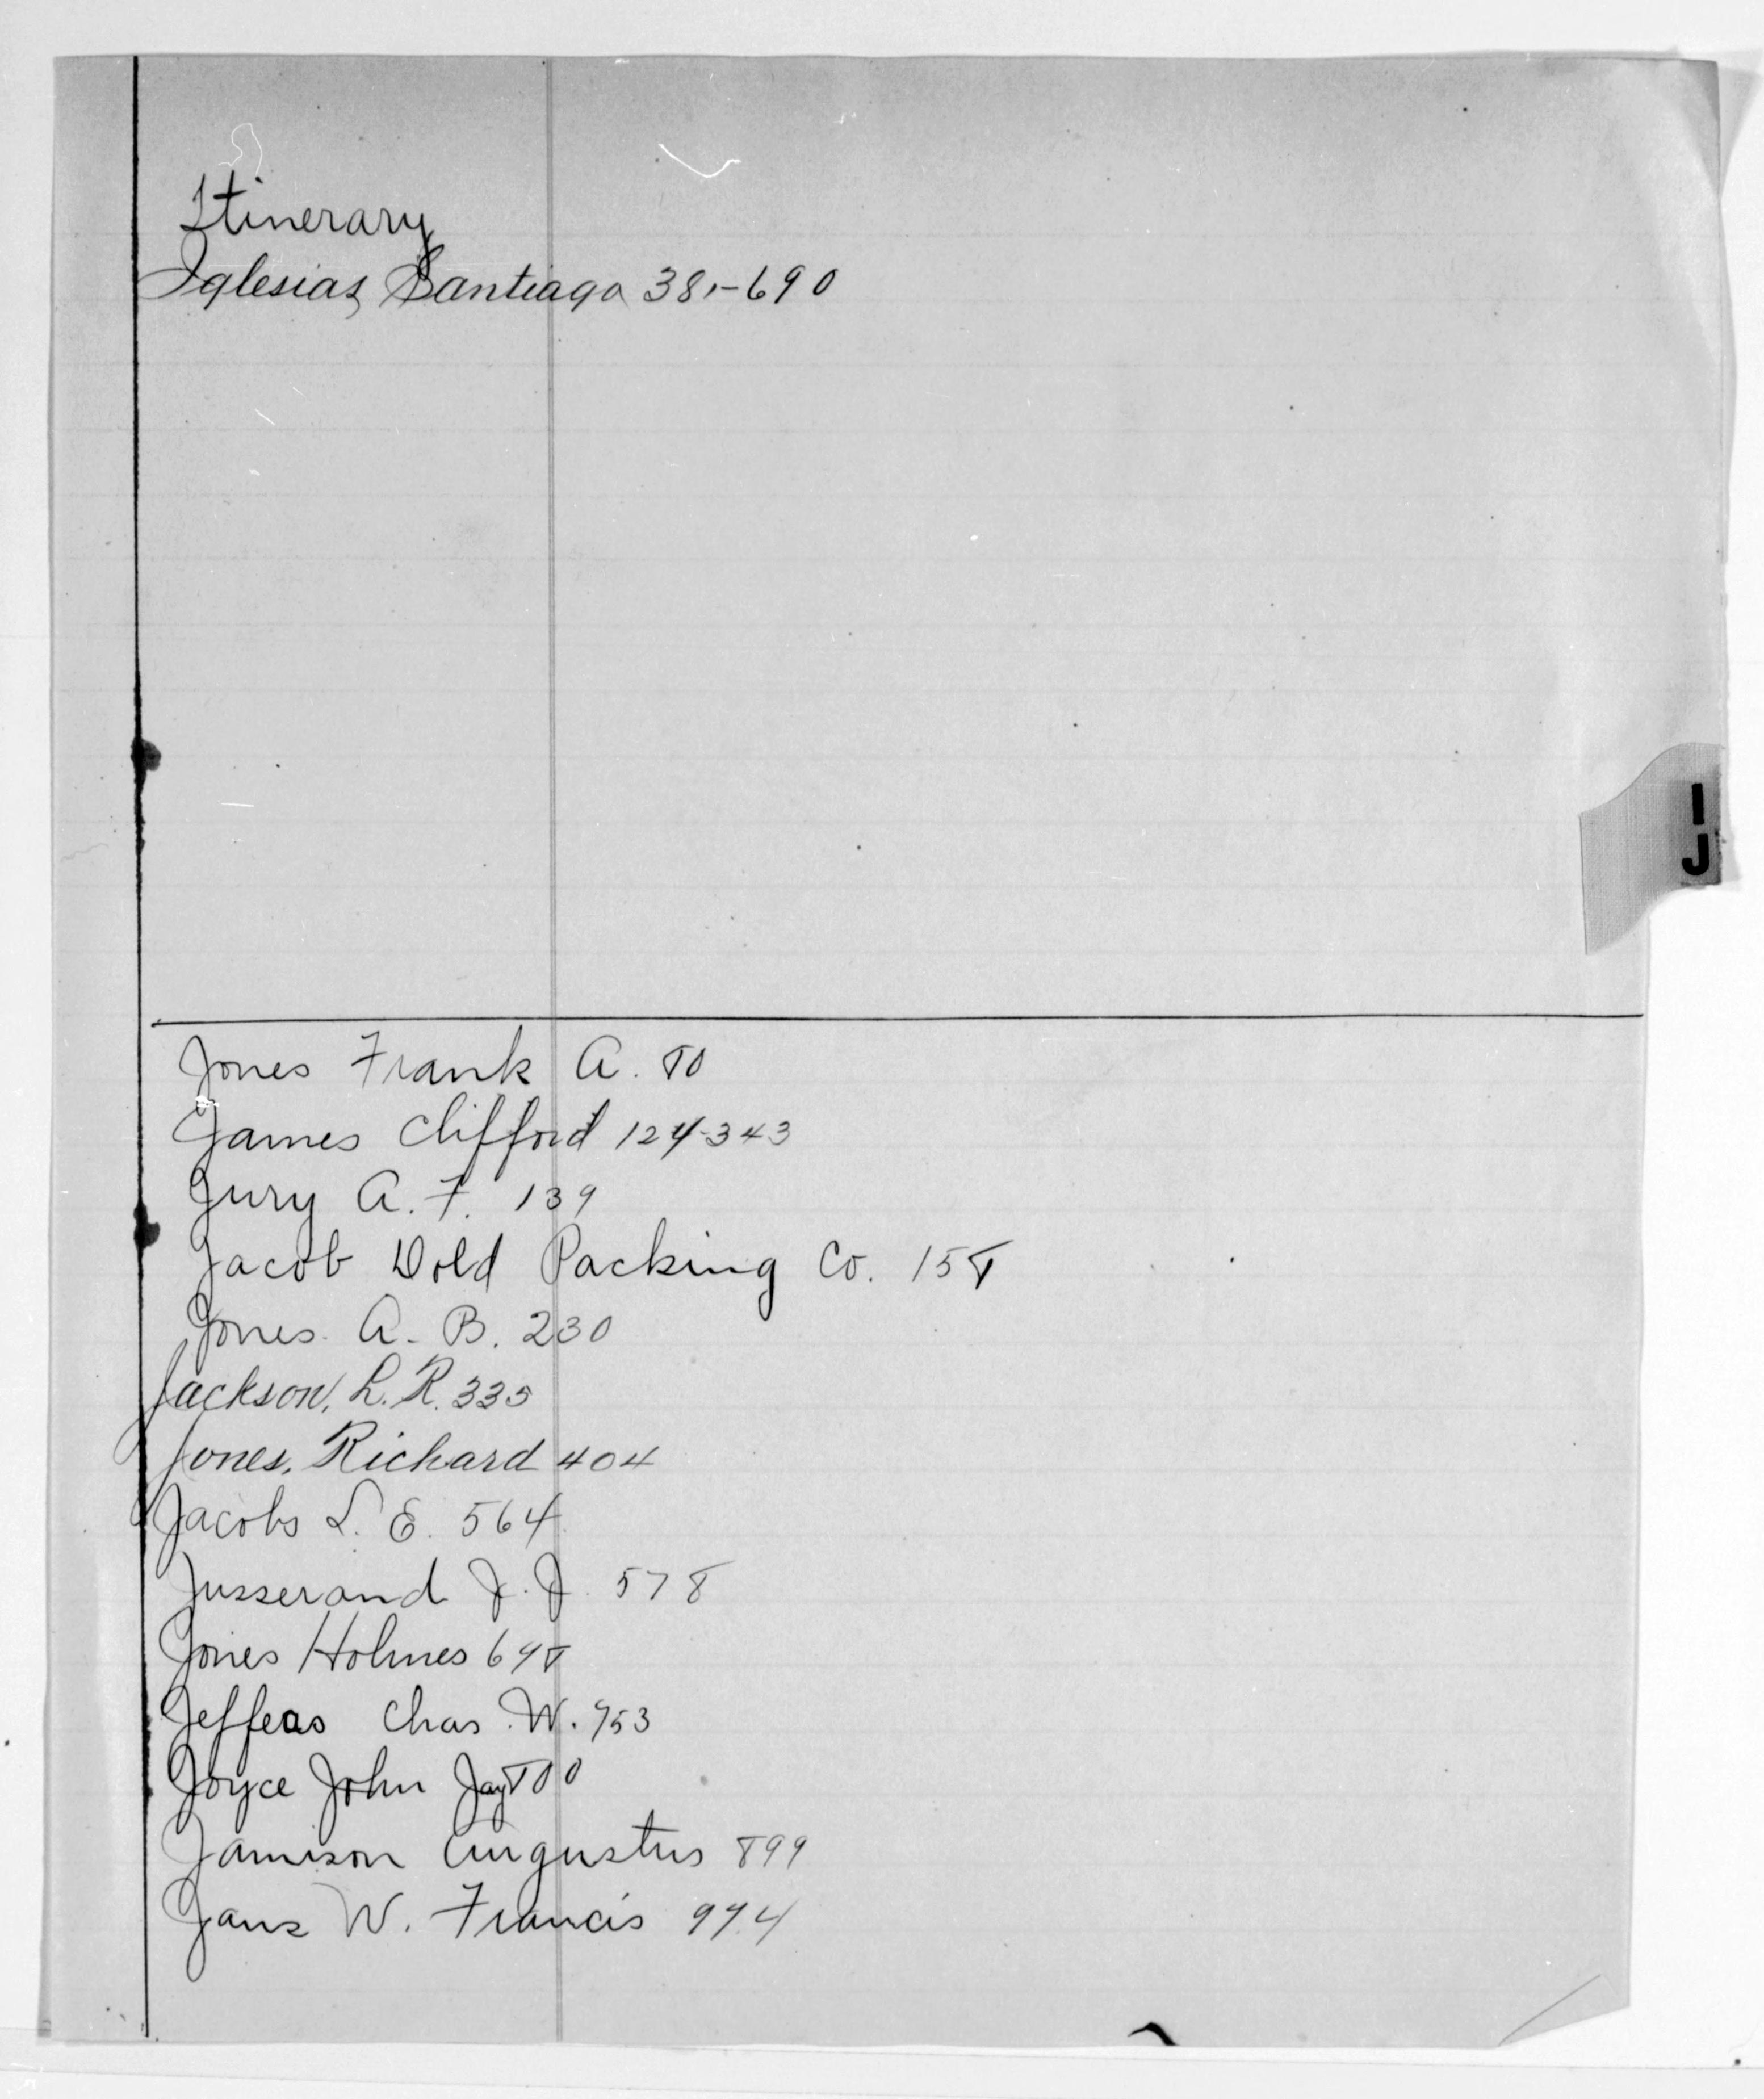 Itinerary
Iglesias, Santiago 38,-690
I
J
Jones Frank A. 80
James Clifford 124-343
Jury A. F. 139
Jacob Dold Packing Co. 158
Jones. A. B. 230
Jackson, L. R. 335
Jones, Richard 404
Jacobs L. E. 564
Jusserand J. J. 578
Jones Holmes 698
Jeffers Chas. W. 753
Joyce John Jay 800
Jamison Augustus 899
W. Francis 974